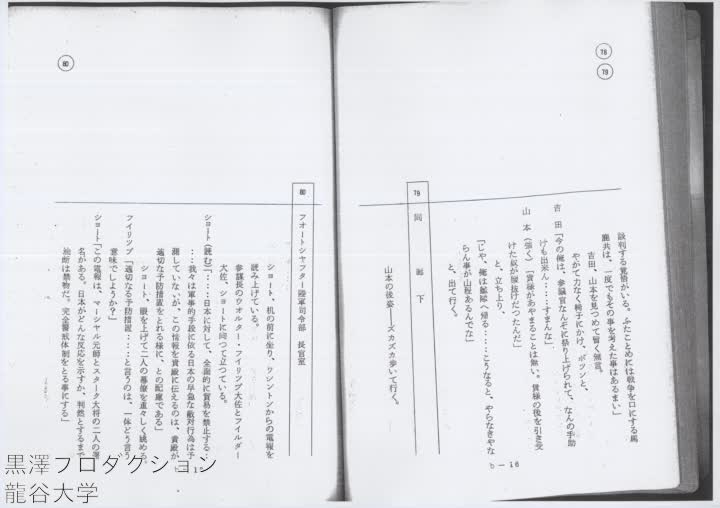 78
79
談判する覚悟がいる。ふたことめには戦争を口にする馬
鹿共は、一度でもその事を考えた事はあるまい」
吉田、山本を見つめて暫く無言。
やがて力なく椅子にかけ、ポツンと、
吉田「今の俺は、参議官なんぞに祭り上げられて、なんの手助
けも出来ん‥‥‥すまんな」
山本（強く）「貴様があやまることは無い。貴様の後を引き受
けた奴が腰抜けだつたんだ」
と、立ち上り、
「じゃ、俺は艦隊へ帰る‥‥‥こうなると、やらなきやな
らん事が山程あるんでな」
と、出て行く。
79 同 廊下
山本の後姿――ズカズカ歩いて行く。
b－16
80
80 フオートシャフター陸軍司令部 長官室
ショート、机の前に坐り、ワシントンからの電報を
読み上げている。
参謀長のウオルター・フィリップ大佐とフイルダー
大佐、ショートに向つて立つている。
ショート（読む）「‥‥‥日本に対して、全面的に貿易を禁止する‥
‥‥我々は軍事的手段に依る日本の早急な敵対行為は予
測していないが、この情報を貴殿に伝えるのは、貴殿が
適切な予防措置をとれる様に、との配慮である」
ショート、眼を上げて二人の幕僚を重々しく眺める
フイリップ「適切なる予防措置‥‥‥と言うのは、一体どう言う
意味でしようか？」
ショート「この電報は、マーシャル元師とスターク大将の二人の署
名がある。日本がどんな反応を示すか、判然とするまで
油断は禁物だ。完全警戒体制をとる事にする」
黒澤プロダクション
龍谷大学